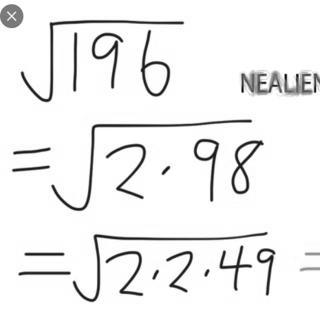 √196
NEALIEN
=√2·98
=√2·2·49 =